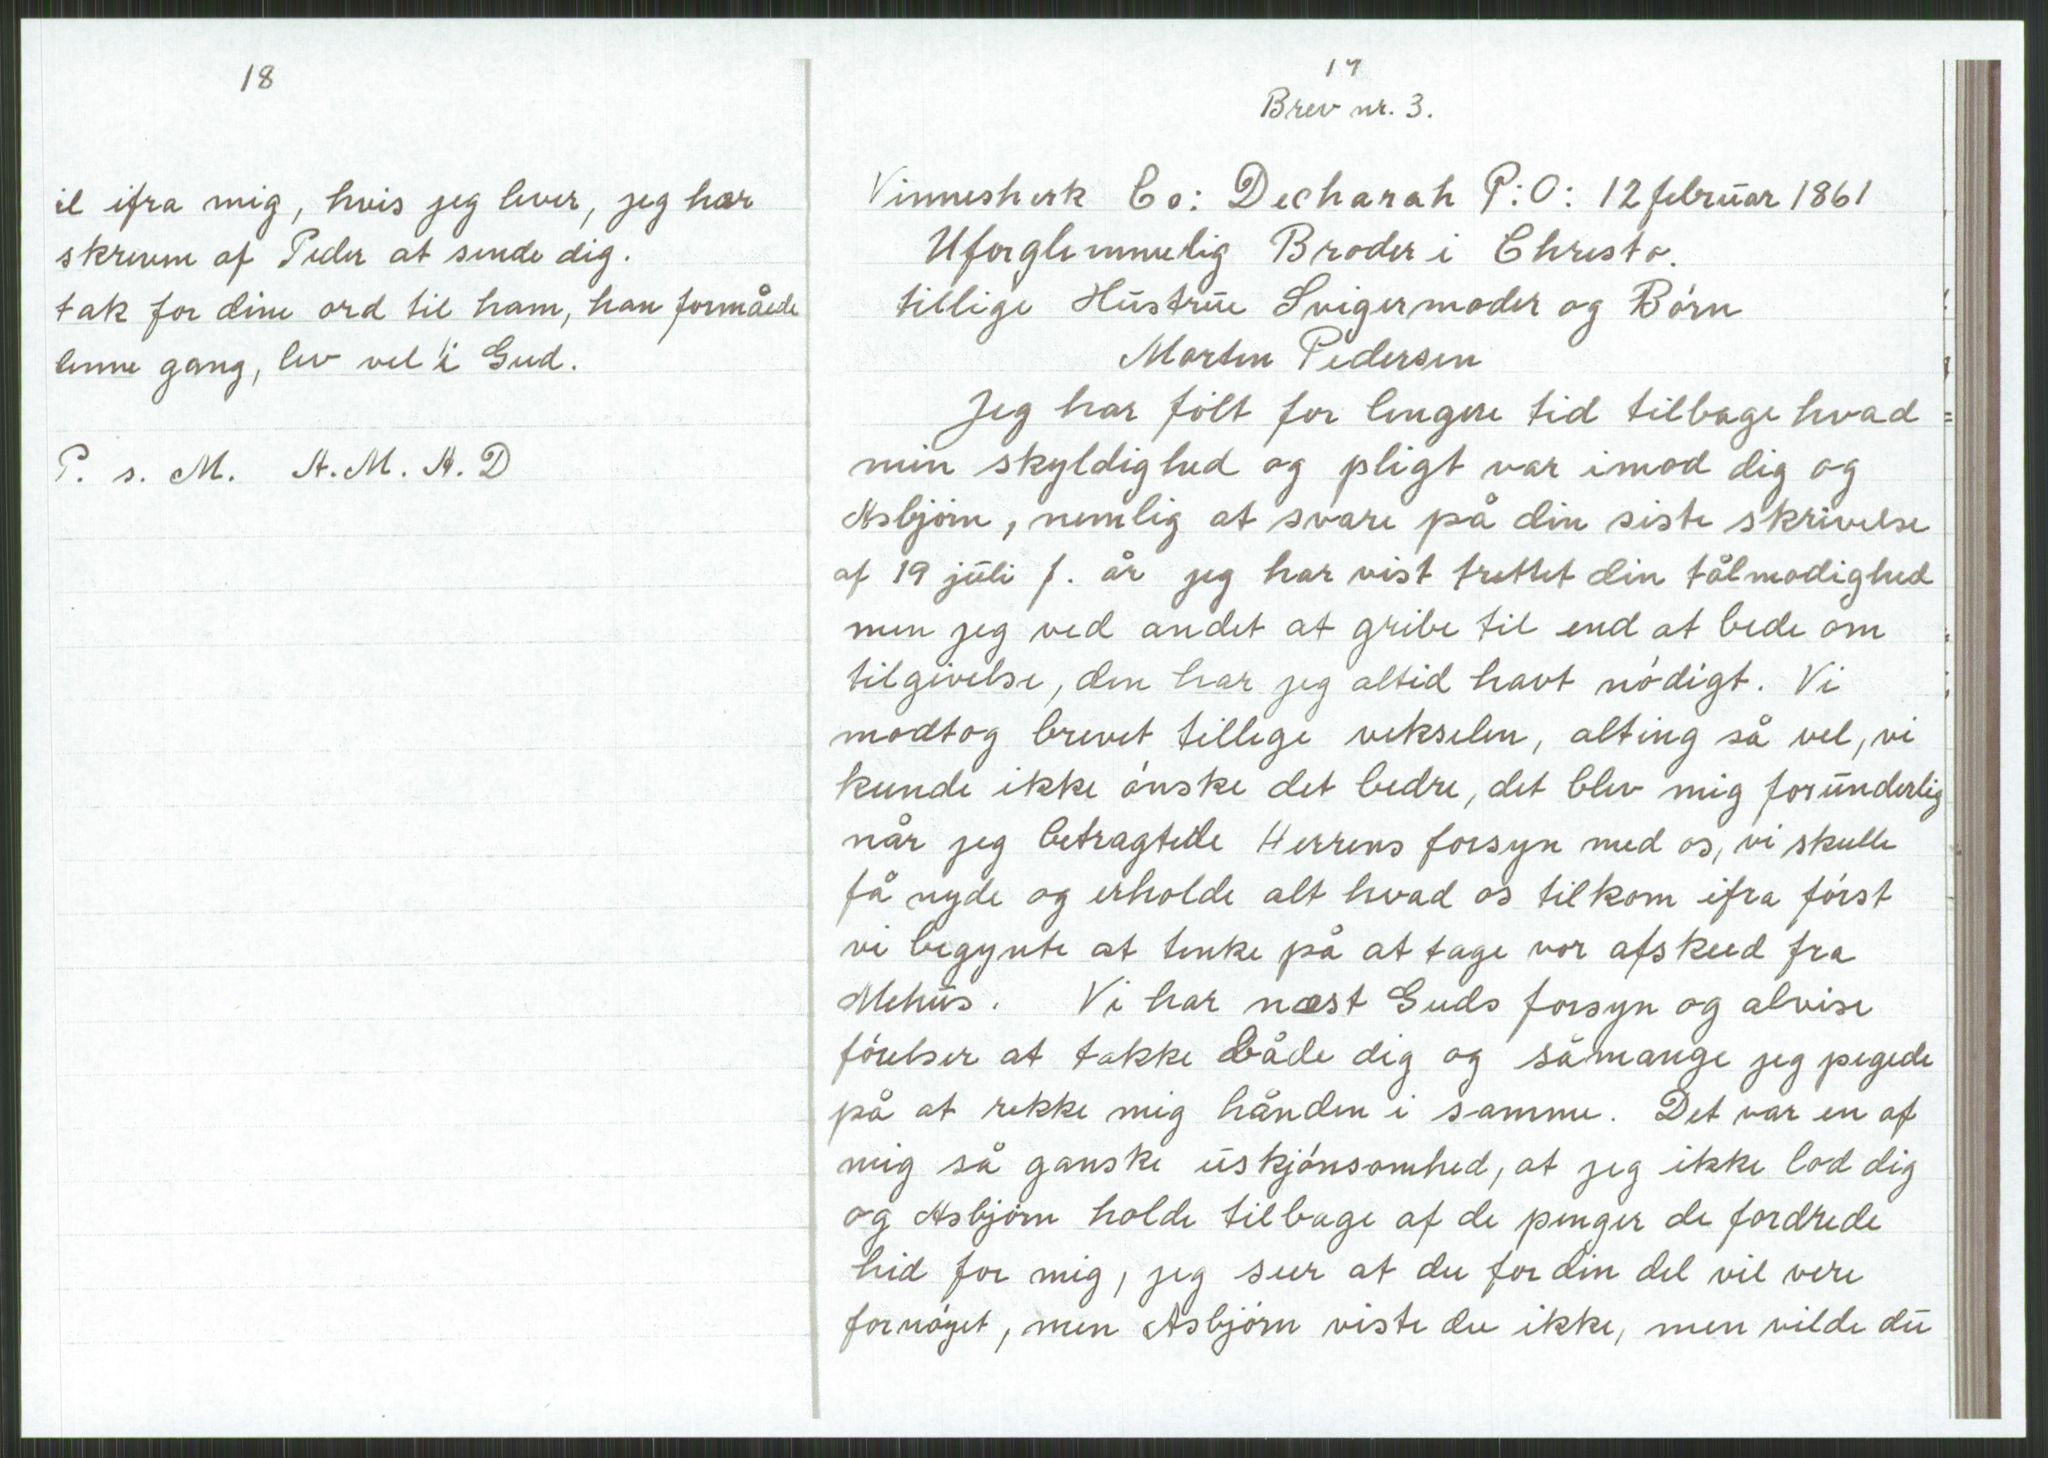 18
il ifra mig, hvis jeg lever, jeg har
skreven af Peder at sende dig.
tak for dine ord til ham, han formåede
lenne gang, lev vel i Gud.
P. s. M. A. M. A. D
17
Brev nr. 3.
Vinneshesk Co: Decharah P:O: 12 februar 1861
Uforglemmelig Broder i Christo.
tillige Hustrue Svigermoder og Børn
Morten Pedersen
Jeg har følt for lengere tid tilbage hvad
min skyldighed og pligt var imod dig og
Asbjørn, nemlig at svare på din siste skrivelse
af 19 juli f. år jeg har vist trettet din tålmodighed
men jeg ved andet at gribe til end at bede om
tilgivelse, den har jeg altid havt nødigt. Vi
modtog brevet tillege vekselen, alting så vel, vi
kunde ikke ønske det bedre, det blev mig forunderlig
når jeg betragtede Herrens forsyn med os, vi skulle
få nyde og erholde alt hvad os tilkom ifra først
vi begynte at tenke på at tage vor afskeed fra
Mehus. Vi har næst Guds forsyn og alvise
førelser at takke både dig og såmange jeg pegede
på at rekke mig hånden i samme. Det var en af
mig så ganske uskjønsomhed, at jeg ikke lod dig
og Asbjørn holde tilbage af de penger de fordrede
hid for mig, jeg seer at du for din del vil vere
fornøyet, men Asbjørn viste du ikke, men vilde du